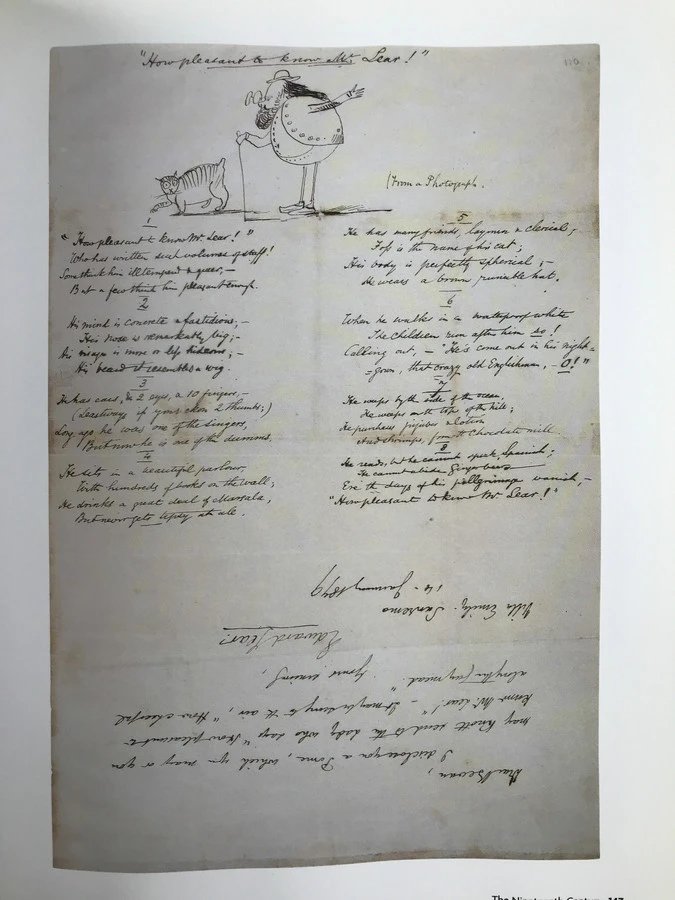 "How pleasant to know Mr. Lear!"
110.
(From a Photograph.
1
"How pleasant to know Mr Lear!"
Who has written such volumes of stuff!
Some think him illtempered & queer,—
But a few think him pleasant enough.
2
His mind is concrete & fastidious,—
His nose is remarkably big;—
His visage is more or less hideous;—
His beard it resembles a wig.
3
He has ears, & 2 eyes, & 10 fingers,—
(Leastways if you reckon 2 thumbs;)
Long ago he was one of the singers,
But now he is one of the dumms.
4
He sits in a beautiful parlour,
With hundreds of books on the wall;
He drinks a great deal of Marsala,
But never gets tipsy at all.
5
He has many friends, laymen & clerical;
Foss is the name of his cat;
His body is perfectly spherical;—
He wears a brown runcible hat.
6
When he walks in a waterproof white
The children run after him so!
Calling out, — "He's come out in his night=
=gown, that crazy old Englishman, — O!"
7
He weeps by the side of the ocean,
He weeps on the top of the hill;
He purchases & lotion
And shrimps, from the Chocolate mill
8
He reads, but he cannot speak, Spanish;
He cannot abide Gingerbeer
Ere the days of his pellgrimage vanish,—
"How pleasant to know Mr Lear!"
Dear Bevan,
I disclose you a Pome, which you may or you
may knott send to the lady who says "How pleasant to
know Mr Lear!" — It may be sung to the air, "How cheerful
along the gay mead."
Yours sincerely,
Edward Lear.
Villa Emily. Sanremo
14 - January 1879
The Nineteenth Century 147